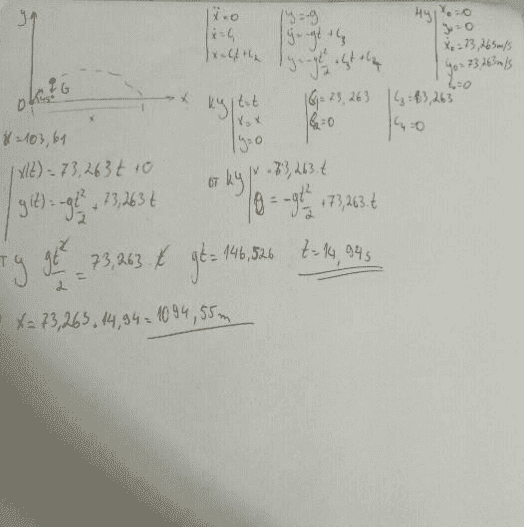 y
ẍ=0
ẋ=C₁
x=C₁t+C₂
ÿ=-g
ẏ=-gt+C₃
y=-gt²/2+C₃t+C₄
НУ
x₀=0
y₀=0
ẋ₀=73,263m/s
ẏ₀=73,263m/s
t₀=0
G
0
x
x
КУ
t=t
x=x
y=0
C₁=73,263
C₂=0
C₄=0
=103,61
x(t)=73,263t+0
y(t)=-gt²/2+73,263t
от КУ
x=73,263.t
=-gt²/2+73,263.t
y
gt²/2=73,263.t
gt=146,526
t=14,94s
x=73,263.14,94=1094,55m